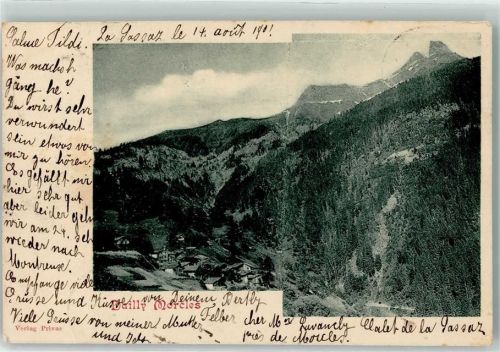 Palme Tildi. La Gassaz le 14 août 1901
Was machsch
gäng he?
Du wirst sehr
verwundert
sein etwas von
mir zu hören.
Es gefällt mir
hier sehr gut
aber leider gehn
wir am 24. sch
wieder nach
Montreux.
Empfange viele
Grüsse und Küsse von Deinem
Dailly Morcles
Verlag Privas
Viele Grüsse von meiner Mutter Felber
und
cher Chalet de la Gassaz
près de Morcles.